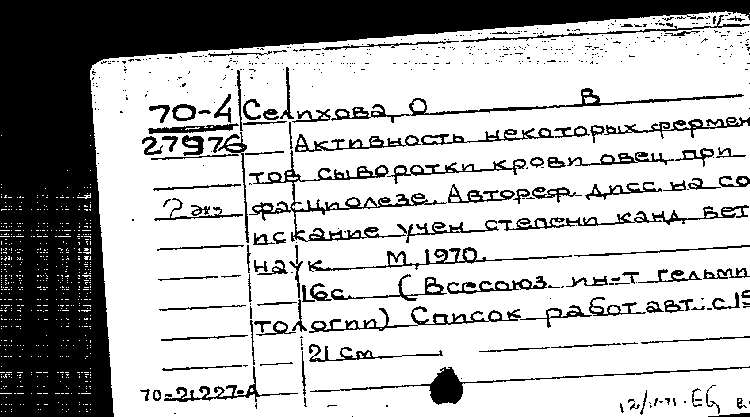 70-4 Селихова, О В
27976 Активность некоторых фермен
тов сыворотки крови овец при
2 экз фасциолезе. Автореф. дисс. на со
искание учен степени канд. вет
наук. М., 1970.
16с. (Всесоюз. ин-т гельмин
тологии) Список работ авт.: с.15
21 см
70-21227-А